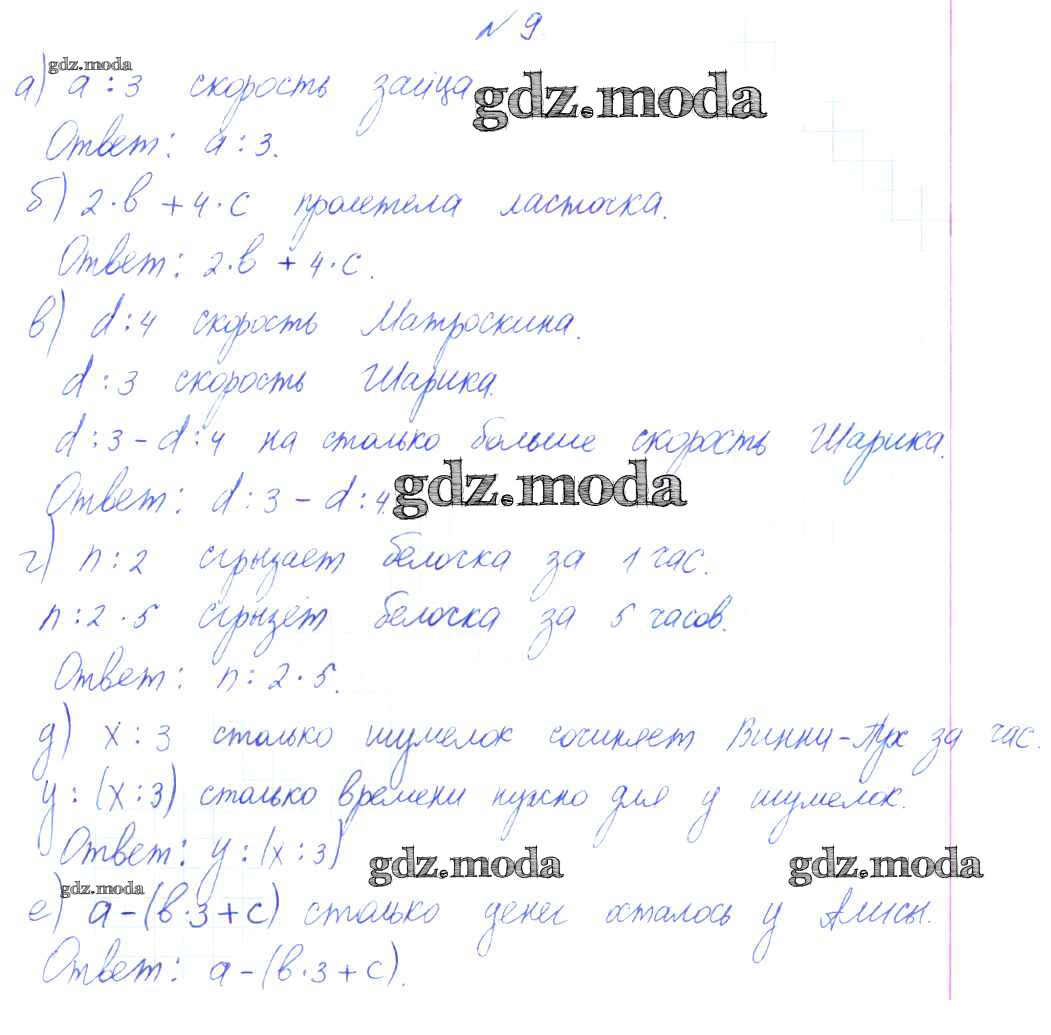 № 9
gdz.moda
а) a : 3 скорость зайца gdz.moda
Ответ: a : 3.
б) 2·b + 4·c пролетела ласточка.
Ответ: 2·b + 4·c.
в) d : 4 скорость Матроскина.
d : 3 скорость Шарика.
d : 3 - d : 4 на столько больше скорость Шарика.
Ответ: d : 3 - d : 4. gdz.moda
г) n : 2 сгрызает белочка за 1 час.
n : 2 · 5 сгрызёт белочка за 5 часов.
Ответ: n : 2 · 5.
д) x : 3 столько шумелок сочиняет Винни-Пух за час.
y : (x : 3) столько времени нужно для y шумелок.
Ответ: y : (x : 3) gdz.moda gdz.moda
gdz.moda
е) a - (b · 3 + c) столько денег осталось у Алисы.
Ответ: a - (b · 3 + c).